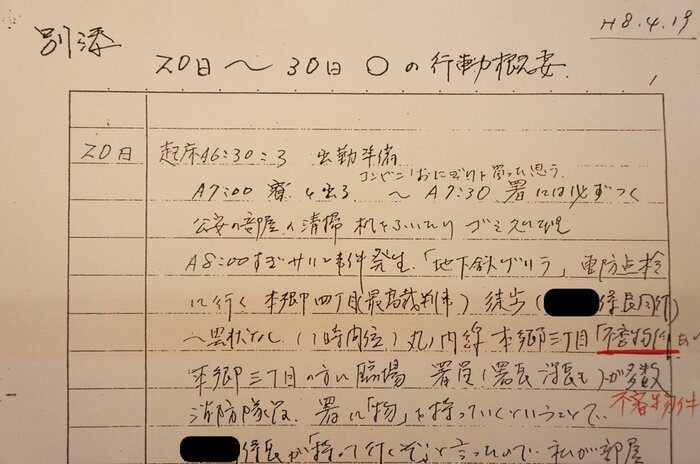 H8.4.19
別添
20日〜30日 〇の行動概要
20日 起床A6:30:3 出勤準備
コンビニ「おにぎり」を買った思う
A7:00 寮を出る 〜 A7:30 署には必ずつく
公安の部屋の清掃 机をふいたり ゴミ
A8:00すぎサリン事件発生.「地下鉄ゲリラ」 点検
に行く 本郷四丁目(最高裁判事) 徒歩( 係長同行)
〜異状なし (1時間位) 丸ノ内線 本郷三丁目「不審物件」
本郷三丁目の方に臨場 署員(署長 )が多数
消防隊位. 署に「物」を持っていくということで.
不審物件
係長が「持って行くぞ」と言ったので. 私が部屋